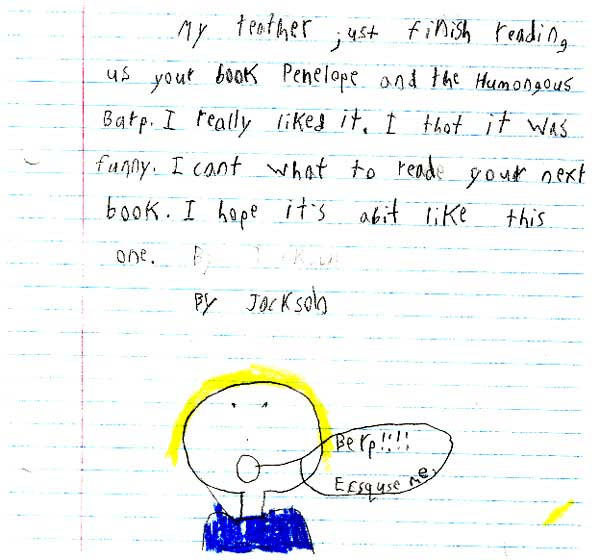 My teather just finish reading
us your book Penelope and the Humongous
Barp. I really liked it. I thot it was
funny. I cant what to reade your next
book. I hope it's abit like this
one. By Jackson
By Jackson
Berp!!!!
Ersquse me.